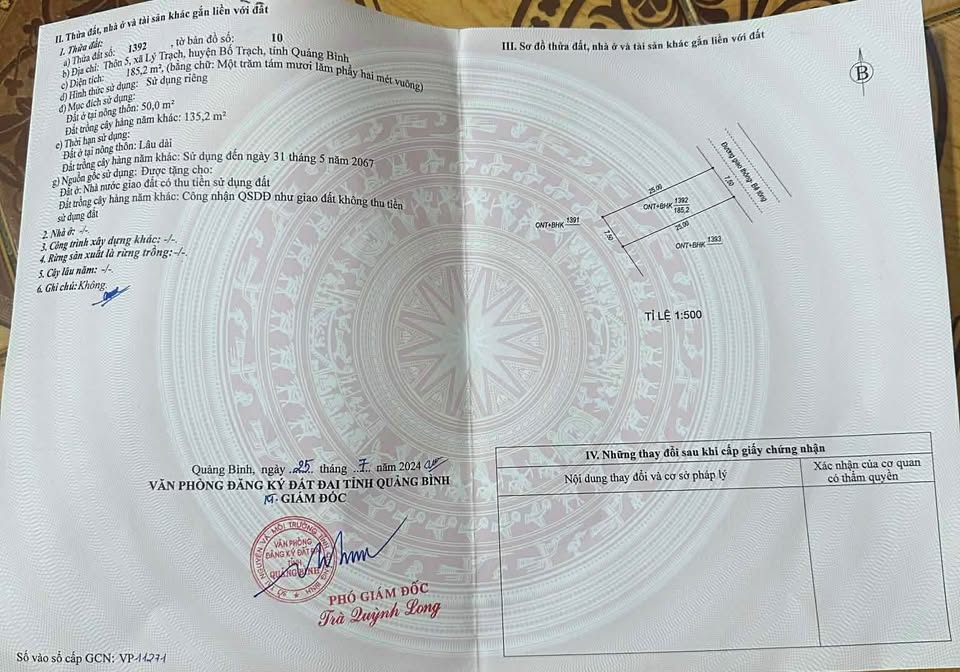 II. Thửa đất, nhà ở và tài sản khác gắn liền với đất
1. Thửa đất:
a) Thửa đất số: 1392 , tờ bản đồ số: 10
b) Địa chỉ: Thôn 5, xã Lý Trạch, huyện Bố Trạch, tỉnh Quảng Bình
c) Diện tích: 185,2 m², (bằng chữ: Một trăm tám mươi lăm phẩy hai mét vuông)
d) Hình thức sử dụng: Sử dụng riêng
đ) Mục đích sử dụng:
Đất ở tại nông thôn: 50,0 m²
Đất trồng cây hàng năm khác: 135,2 m²
e) Thời hạn sử dụng:
Đất ở tại nông thôn: Lâu dài
Đất trồng cây hàng năm khác: Sử dụng đến ngày 31 tháng 5 năm 2067
g) Nguồn gốc sử dụng: Được tặng cho:
Đất ở: Nhà nước giao đất có thu tiền sử dụng đất
Đất trồng cây hàng năm khác: Công nhận QSDĐ như giao đất không thu tiền
sử dụng đất
2. Nhà ở: -/-
3. Công trình xây dựng khác: -/-.
4. Rừng sản xuất là rừng trồng: -/-.
5. Cây lâu năm: -/-
6. Ghi chú: Không.
Quảng Bình, ngày 25 tháng 7 năm 2024
VĂN PHÒNG ĐĂNG KÝ ĐẤT ĐAI TỈNH QUẢNG BÌNH
KT. GIÁM ĐỐC
VĂN PHÒNG
ĐĂNG KÝ ĐẤT ĐAI
TỈNH
QUẢNG BÌNH
PHÓ GIÁM ĐỐC
Trà Quỳnh Long
Số vào sổ cấp GCN: VP11271
III. Sơ đồ thửa đất, nhà ở và tài sản khác gắn liền với đất
B
Đường giao thông: Bê tông
25,00
7,50
ONT+BHK 1392
185,2
ONT+BHK 1391
7,50
25,00
ONT+BHK 1393
TỈ LỆ 1:500
IV. Những thay đổi sau khi cấp giấy chứng nhận
Nội dung thay đổi và cơ sở pháp lý
Xác nhận của cơ quan
có thẩm quyền